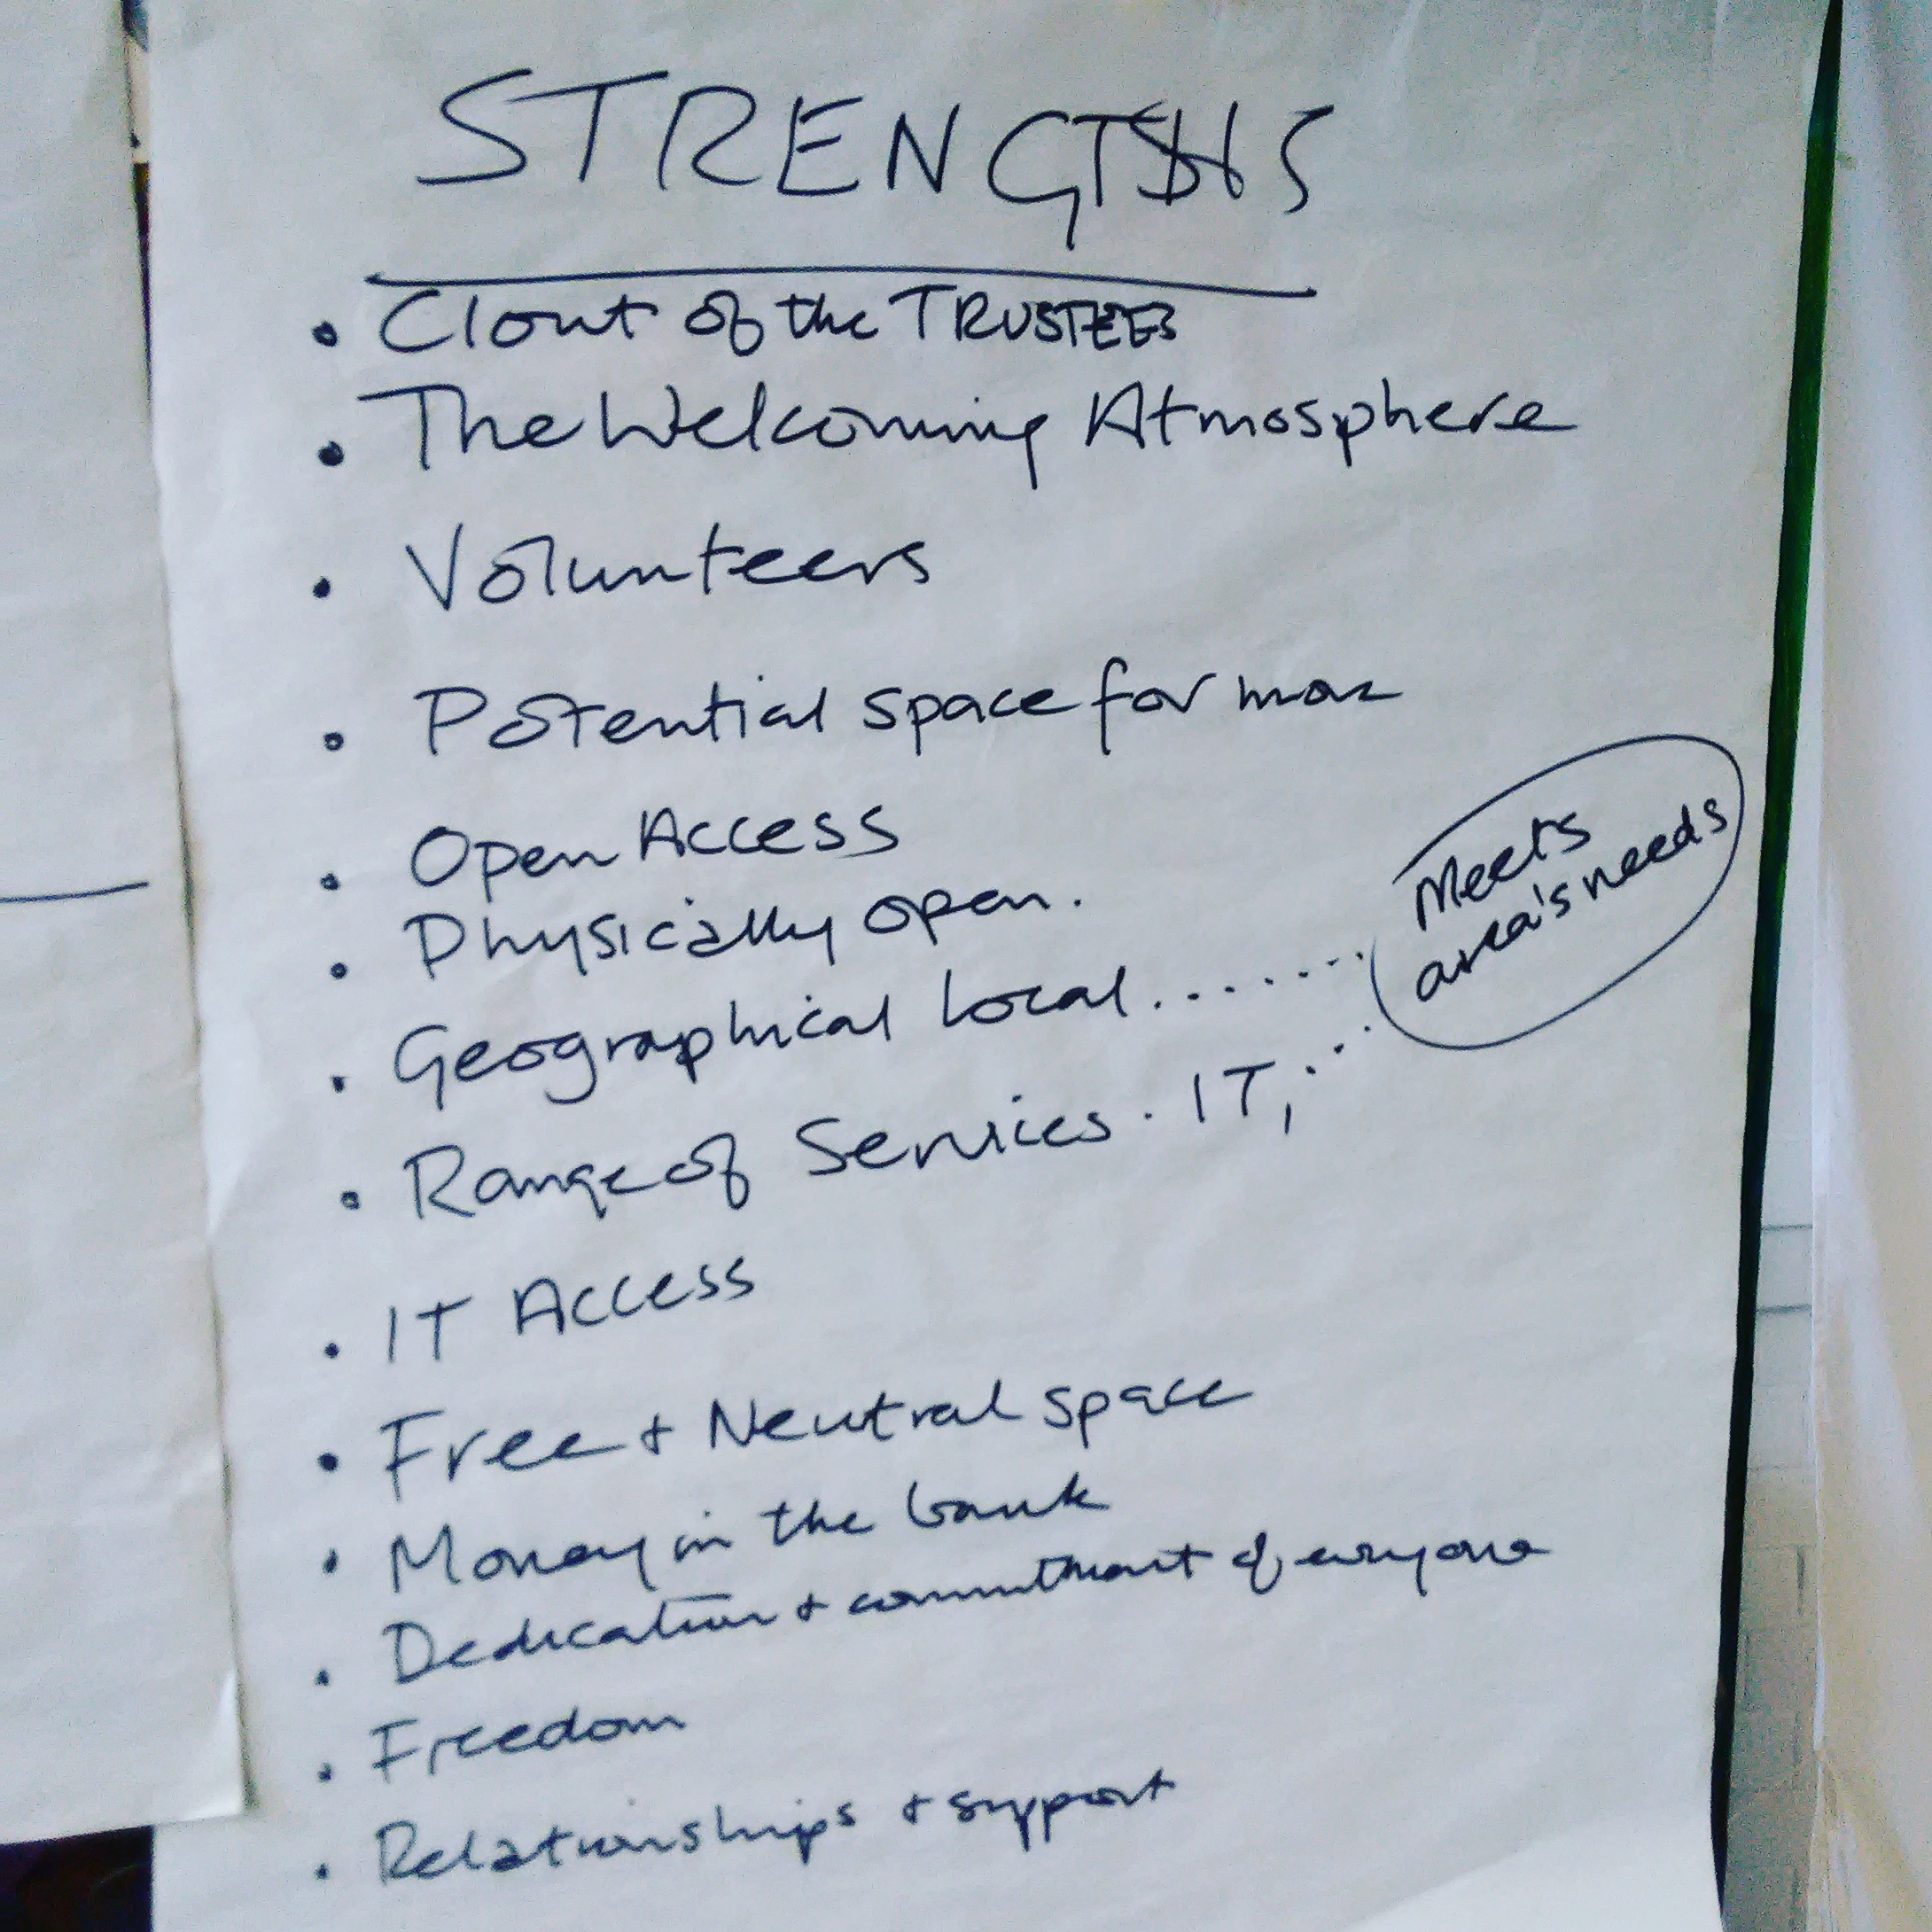 STRENGTHS
• Clout of the TRUSTEES
• The Welcoming Atmosphere
• Volunteers
• Potential space for more
• Open Access
• Physically open.
• Geographical Local.......
Meets
area's needs
• Range of Services. IT, ...
• IT Access
• Free + Neutral space
• Money in the bank
• Dedication + commitment of everyone
• Freedom
• Relationships + support